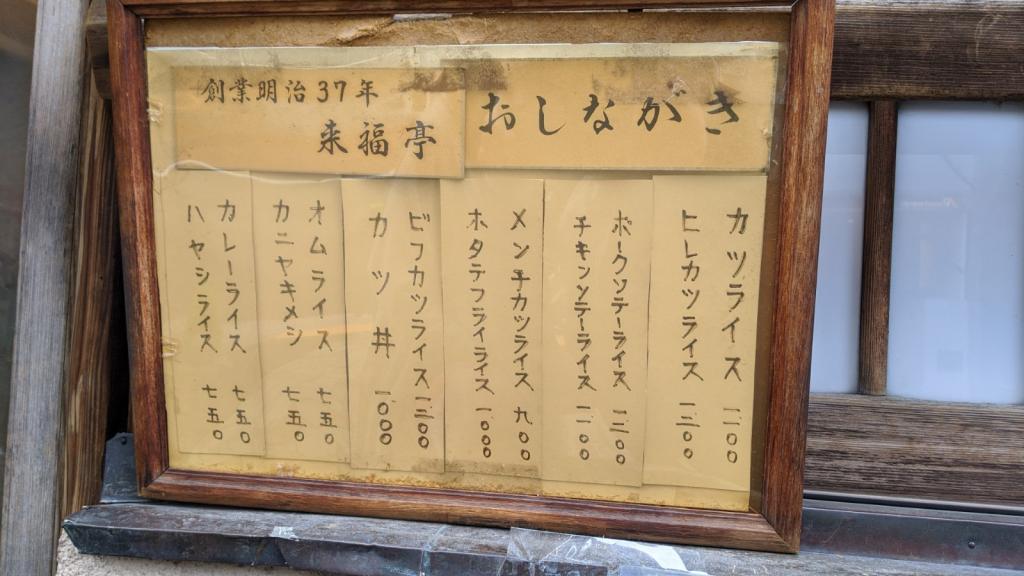 おしながき
創業明治37年
来福亭
カツライス 一一〇〇
ヒレカツライス 一三〇〇
ポークソテーライス
チキンソテーライス 一一〇〇
メンチカツライス 九〇〇
ホタテフライライス 一〇〇〇
ビフカツライス
カツ丼 一〇〇〇
オムライス 七五〇
カニヤキメシ 七五〇
カレーライス 七五〇
ハヤシライス 七五〇